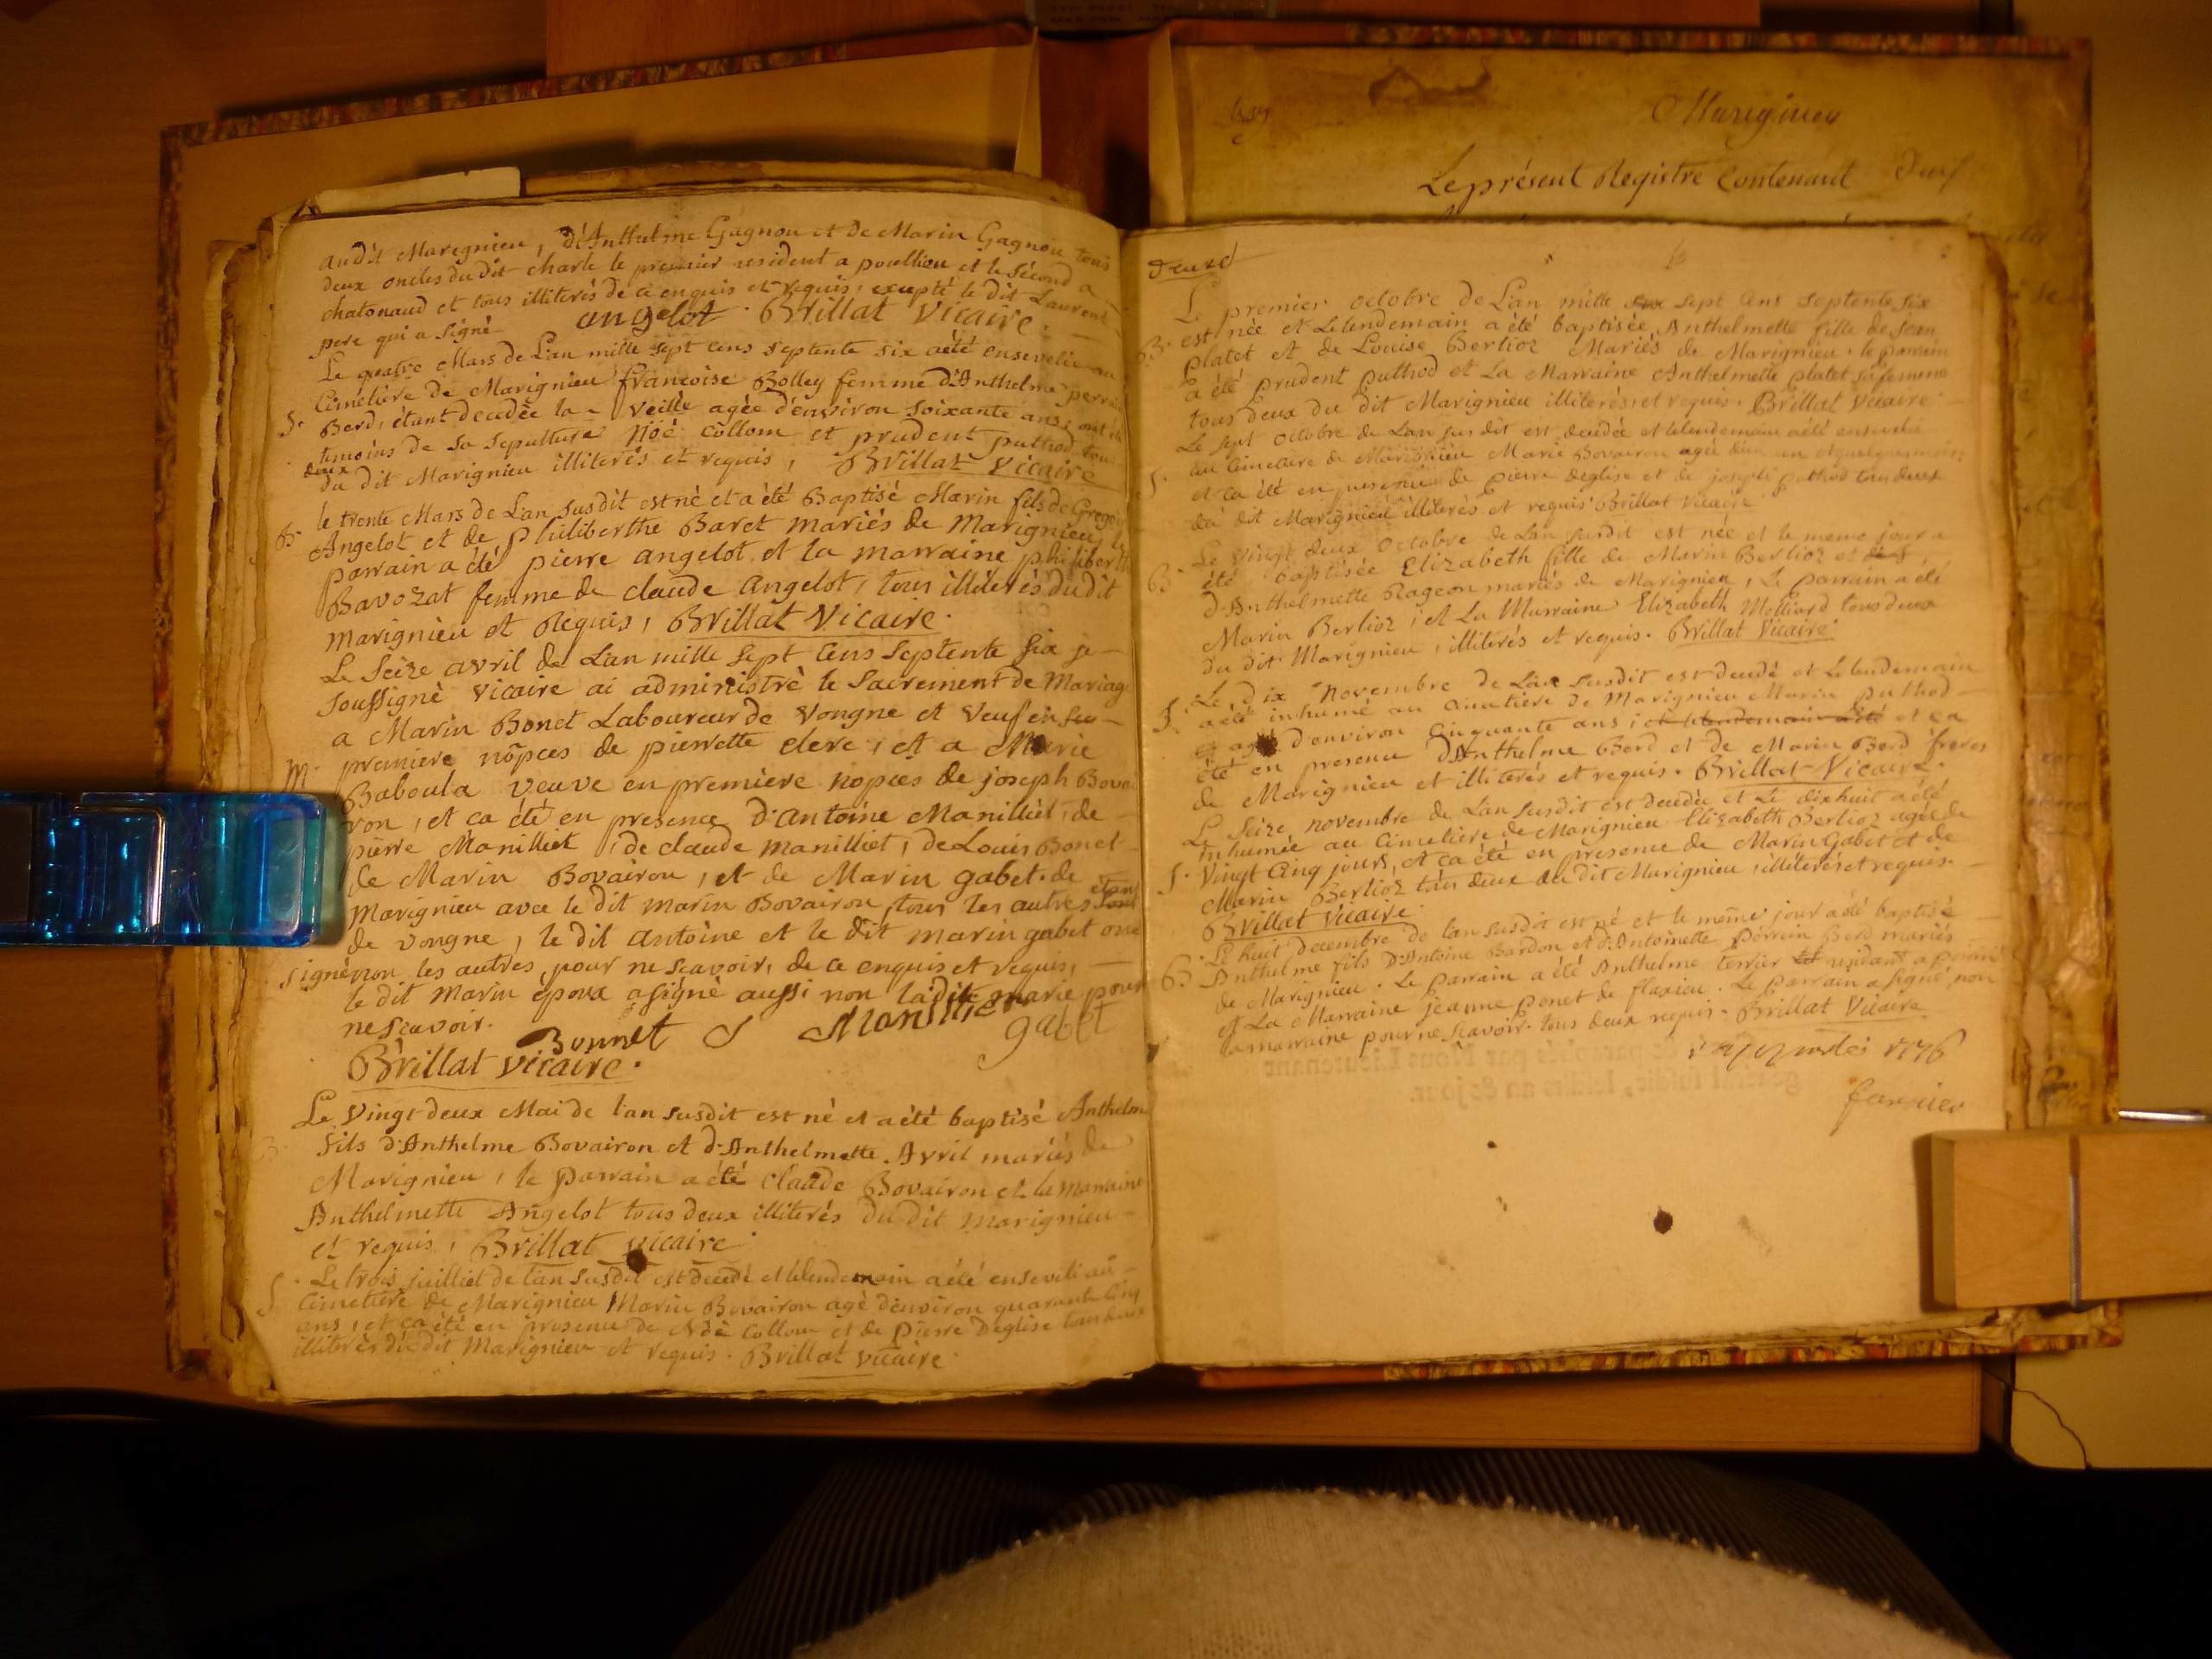 audit Maregnieu, d'Anthelme Gagnou et de Marin Gagnou tous
deux oncles du dit charle le premier resident a pouellieu et le second a
chatonaud et tous illiterès de ce enquis et requis, excepté le dit Laurent
pere qui a signé angelot. Brillat Vicaire.
Le quatre Mars de L'an mille sept cens septente six a été ensevelie au
Cimetière de Marignieu francoise Bolley femme d'Anthelme perrain
S. Berd, étant decedée la veille agée d'environ soixante ans, ont été
temoins de sa sepulture Noé Collom et prudent puthod tous
deux
du dit Marignieu illiterés et requis, Brillat Vicaire
le trente Mars de L'an susdit est né et a été Baptisé Marin fils de Gregoire
B. Angelot et de philiberthe Baret mariés de Marignieu, le
parrain a été pierre angelot et la marraine philiberthe
Bavozat femme de claude angelot, tous illiterés du dit
marignieu et Requis, Brillat Vicaire.
Le Seize avril de L'an mille sept cens septente six je
soussigné vicaire ai administré le sacrement de Mariage
a Marin Bonet Laboureur de Vongne et Veuf en sa
M. premiere nopces de pierrette clerc, et a Marie
Baboula veuve en premiere nopces de joseph Bovai
ron, et ca été en presence d'antoine Manilliet, de
pierre Manilliet, de claude manilliet, de Louis Bonet
de Marin Bovairon, et de Marin gabet. de
étant
Marignieu avec le dit marin Bovairon, tous les autres sont
de vongne, le dit antoine et le dit marin gabet ont
signé non les autres, pour ne scavoir, de ce enquis et requis,
le dit marin epoux a signé aussi non la dite marie pour
ne scavoir. Bonnet Manilliet gabet
Brillat vicaire.
Le Vingt deux Mai de l'an susdit est né et a été baptisé Anthelme
B. fils d'Anthelme Bovairon et d'Anthelmette Avril mariés de
Marignieu, le parrain a été Claude Bovairon et la marraine
Anthelmette Angelot tous deux illiterés du dit marignieu
et requis, Brillat vicaire
S. Le trois juilliet de l'an susdit est decedé et lelendemain a été enseveli au
Cimetiere de Marignieu Marin Bovairon agé d'environ quarante cinq
ans, et ca été en presence de Noé Collom et de Pierre Deglise tous deux
illiterés du dit Marignieu et requis. Brillat vicaire
Marignieu
Le présent Registre Contenant deux
Deuxe
Le premier octobre de L'an mille six sept cens septente six
B. est née et Lelendemain a été baptisée Anthelmette fille de jean
platet et de Louise Berlioz Mariés de Marignieu. le parrain
a été prudent puthod et La Marraine Anthelmette platet sa femme
tous deux du dit Marignieu illiterés, et requis. Brillat Vicaire
Le sept octobre de L'an susdit est decedée et lelendemain a été ensevelie
au Cimetiere de Marignieu Marie Bovairon agée d'un an et quelques mois,
S. et ca été en presence de pierre deglise et de joseph puthod tous deux
du dit Marignieu illiterés et requis Brillat Vicaire
Le vingt deux Octobre de L'an susdit est née et le meme jour a
B. été baptisée Elizabeth fille de Marin Berlioz et
d'Anthelmette Rageon mariés de Marignieu, Le parrain a été
Marin Berlioz, et La Marraine Elizabeth Molliard tous deux
du dit Marignieu, illiterés et requis. Brillat Vicaire
Le dix Novembre de L'an susdit est decedé et Lelendemain
S. a été inhumé au Cimetiere de Marignieu Marin puthod
agé d'environ Cinquante ans, et lelendemain a été et ca
été en presence d'Anthelme Berd et de Marin Berd freres
de Marignieu et illiterés et requis. Brillat Vicaire.
Le Seize novembre de L'an susdit est decedée et Le dixhuit a été
inhumée au Cimetiere de Marignieu Elizabeth Berlioz agée de
S. Vingt Cinq jours, et ca été en presence de Marin Gabet et de
Marin Berlioz tous deux du dit Marignieu, illiterés et requis.
Brillat Vicaire.
Le huit decembre de l'an susdit est né et le même jour a été baptisé
B. Anthelme fils D'Antoine Bardon et d'Antoinette perrain Berd mariés
de Marignieu. Le parrain a été Anthelme terrier residant a
et La Marraine jeanne ponet de flaxieu. Le parrain a signé, non
la marraine pour ne scavoir. tous deux requis. Brillat Vicaire
1776